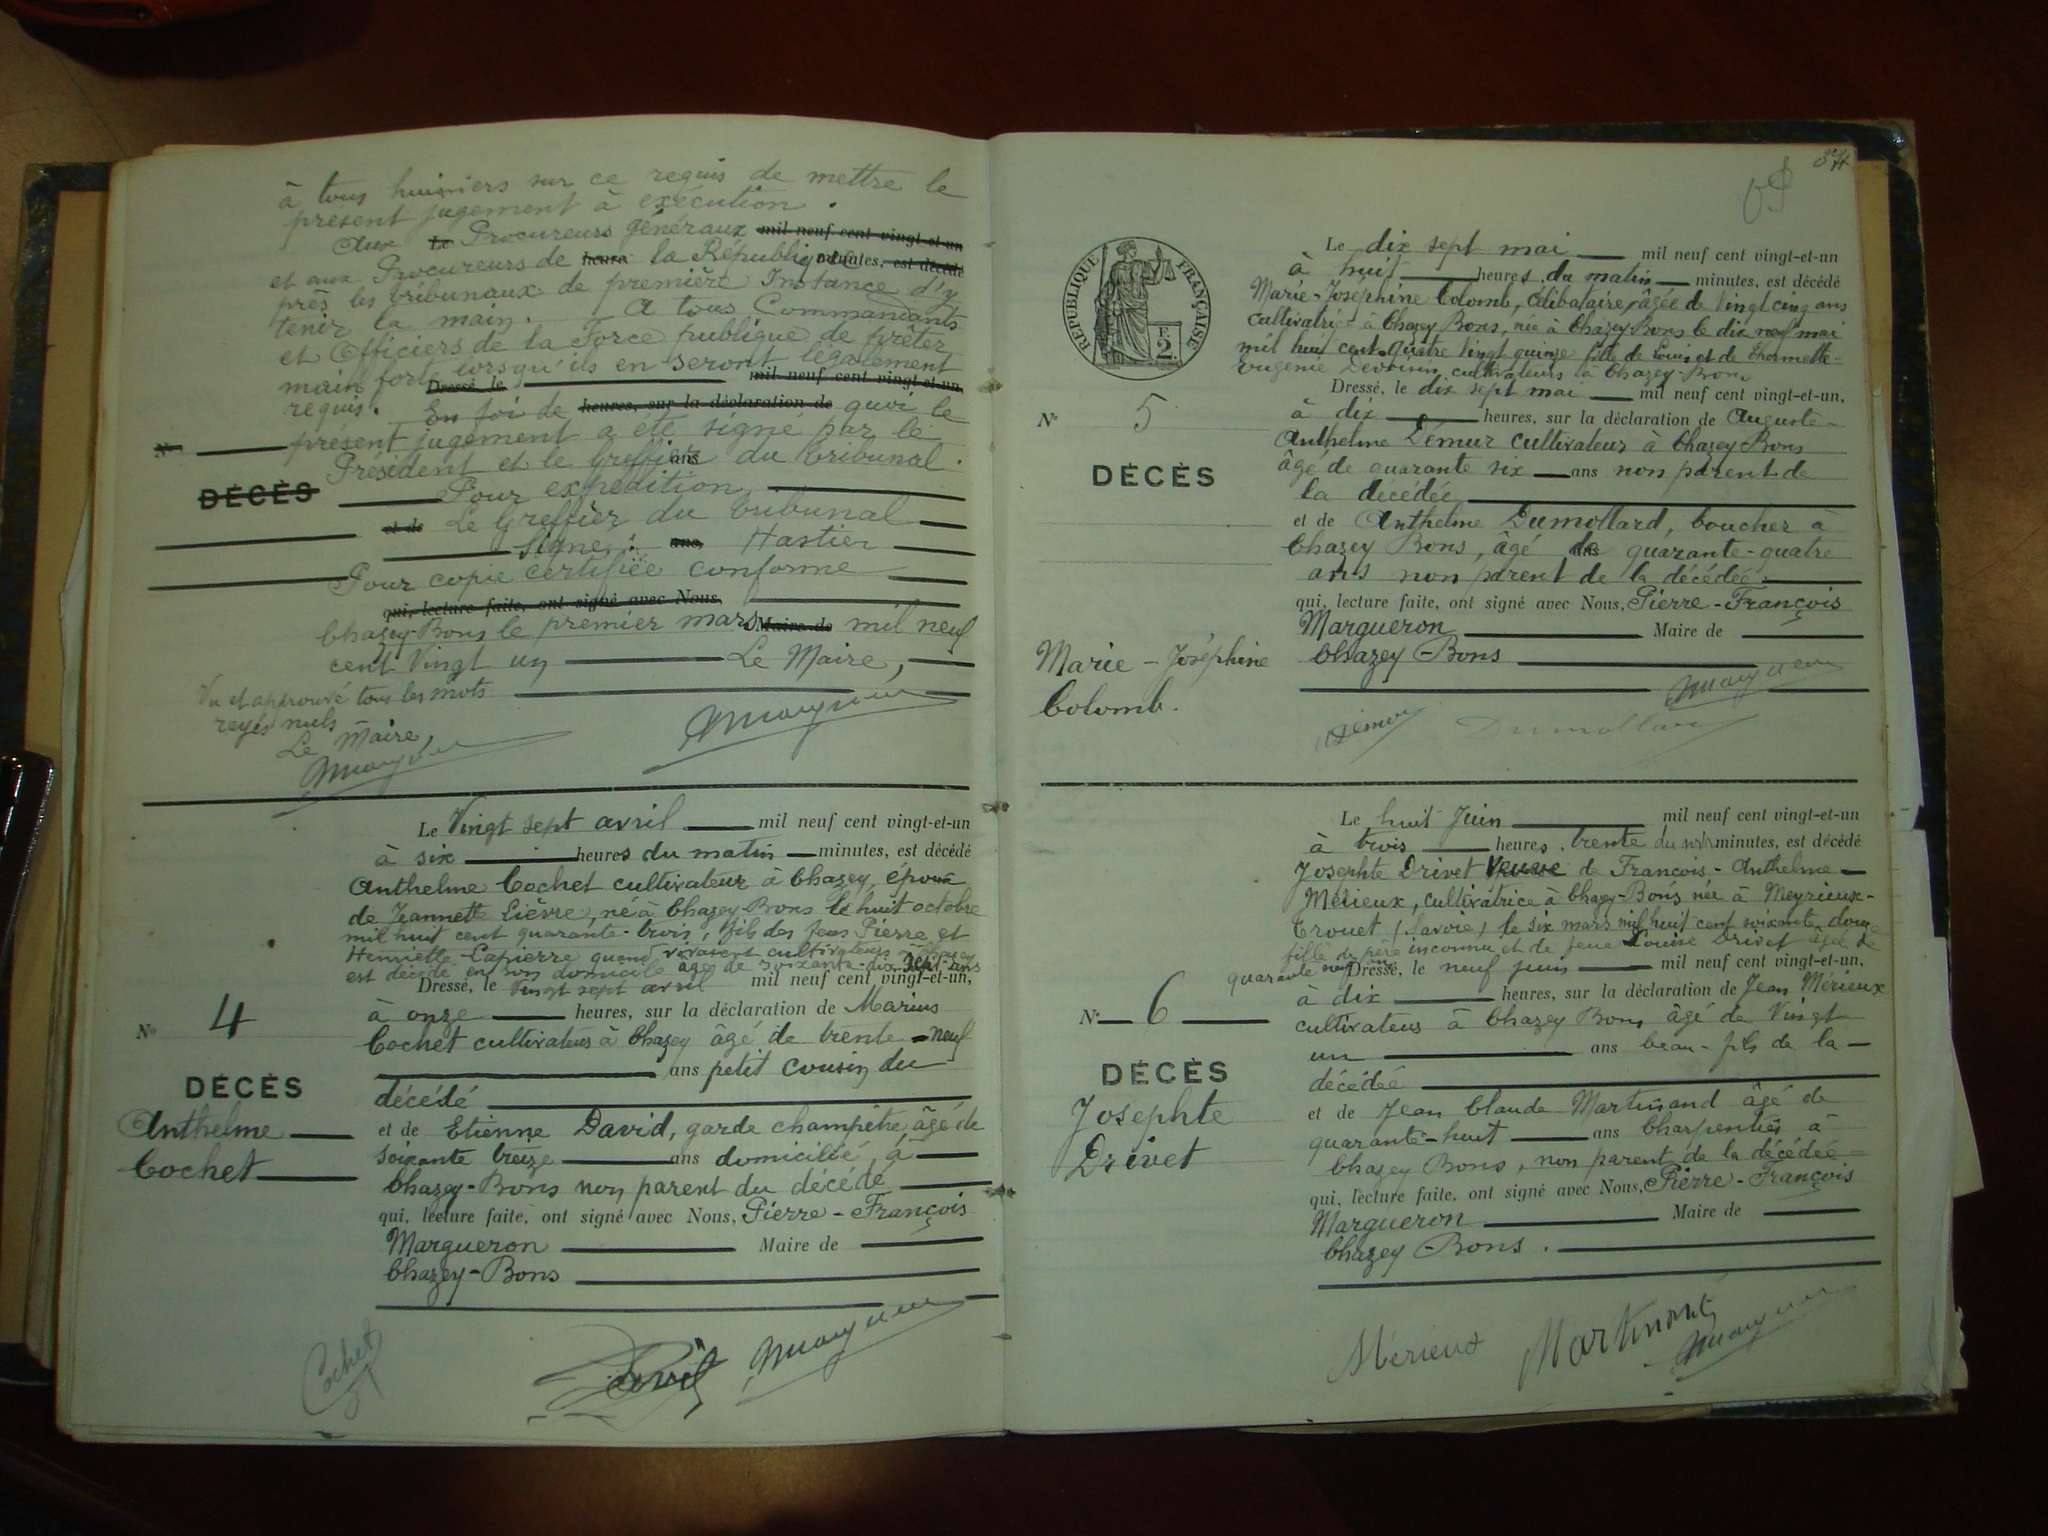 à tous huissiers sur ce requis de mettre le
présent jugement à exécution.
Aux Le Procureurs généraux mil neuf cent vingt-et-un
et aux Procureurs de heure la République minutes, est décédé
près les tribunaux de première Instance d'y
tenir la main. A tous Commandants
et Officiers de la Force publique de prêter
main forte lorsqu'ils en seront légalement
Dressé, le mil neuf cent vingt-et-un,
requis. En foi de heures, sur la déclaration de quoi le
N° présent jugement a été signé par le
Président et le Greffier ans du tribunal.
DÉCÈS Pour expédition
et de Le Greffier du tribunal
signé : ans, Hastier
Pour copie certifiée conforme
qui, lecture faite, ont signé avec Nous,
Chazey-Bons le premier mars Maire de mil neuf
cent vingt un Le Maire,
Vu et approuvé tous les mots
rayés nuls
Le Maire,
Le Vingt sept avril mil neuf cent vingt-et-un
à six heures du matin minutes, est décédé
Anthelme Cochet cultivateur à Chazey, époux
de Jeannette Lièvre, né à Chazey-Bons le huit octobre
mil huit cent quarante-trois, fils des feus Pierre et
Henriette Lapierre quand vivaient cultivateurs à Chazey
est décédé en son domicile âgé de soixante-dix-sept ans
Dressé, le Vingt sept avril mil neuf cent vingt-et-un,
à onze heures, sur la déclaration de Marius
N° 4
Cochet cultivateur à Chazey âgé de trente-neuf
ans petit cousin du
DÉCÈS
décédé
Anthelme
et de Etienne David, garde champêtre âgé de
soixante treize ans domicilié à
Cochet
Chazey-Bons non parent du décédé
qui, lecture faite, ont signé avec Nous, Pierre-François
Margueron Maire de
Chazey-Bons
Cochet
David
RÉPUBLIQUE FRANÇAISE
F.
2
Le dix sept mai mil neuf cent vingt-et-un
à huit heures du matin minutes, est décédé
Marie-Joséphine Colomb, Célibataire, âgée de Vingt cinq ans
cultivatrice à Chazey Bons, née à Chazey Bons le dix neuf mai
mil huit cent quatre vingt quinze fille de Louis et de
Eugénie cultivateurs à Chazey-Bons
Dressé, le dix sept mai mil neuf cent vingt-et-un,
N° 5
à dix heures, sur la déclaration de Auguste-
Anthelme Lémur cultivateur à Chazey Bons
DÉCÈS
âgé de quarante six ans non parent de
la décédée
et de Anthelme Dumollard, boucher à
Chazey Bons, âgé de ans quarante-quatre
ans non parent de la décédée
qui, lecture faite, ont signé avec Nous, Pierre-François
Margueron Maire de
Marie-Joséphine
Chazey Bons
Colomb.
Dumollard
Le huit Juin mil neuf cent vingt-et-un
à trois heures trente du soir minutes, est décédé
Josephte Drivet Veuve de François-Anthelme
Mérieux, cultivatrice à Chazey-Bons née à Meyrieux-
Trouet (Savoie) le six mars mil huit cent soixante douze
fille de père inconnu et de feue Louise Drivet âgée de
quarante neuf ans Dressé, le neuf juin mil neuf cent vingt-et-un,
à dix heures, sur la déclaration de Jean Mérieux
N° 6
cultivateur à Chazey Bons âgé de Vingt
un ans beau-fils de la
DÉCÈS
décédée
Josephte
et de Jean Claude Martinand âgé de
quarante-huit ans Charpentier à
Drivet
Chazey Bons, non parent de la décédée
qui, lecture faite, ont signé avec Nous, Pierre-François
Margueron Maire de
Chazey Bons.
Mérieux
Martinand